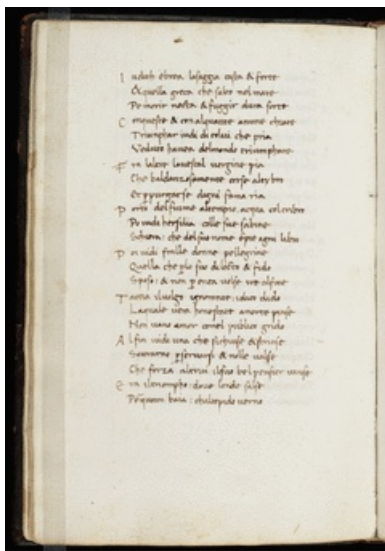 I udith ebrea lasaggia casta & forte
Et quella greca che salto nel mare
Per morir netta & fuggir dura sorte
C on queste & con alquante anime chiare
Triumphar vidi di colui che pria
Veduto havea delmondo triumphare
F ra laltre lavestal vergine pia
Che baldanzosamente corse altybro
Et ppurgarse dogni fama ria
P orto delfiume altempio acqua colcribro
Poi vidi hersilia colle sue sabine
Schiera: che del suo nome empie ogni libro
P oi vidi fralle donne pellegrine
Quella che plo suo dilecto & fido
Sposo: & non p enea volse ire alfine
T accia iluulgo ignorante: dico dido
Laquale honestate amorte pinse
Non vano amor come il publico grido
A lfin vidi una che sichiuse & strinse
Sovrarno pservarsi & nolle valse
Che forza altrui ilsuo bel pensier vinse
E ra iltriompho: dove londe salse
Percoton baia: chaltepido verno